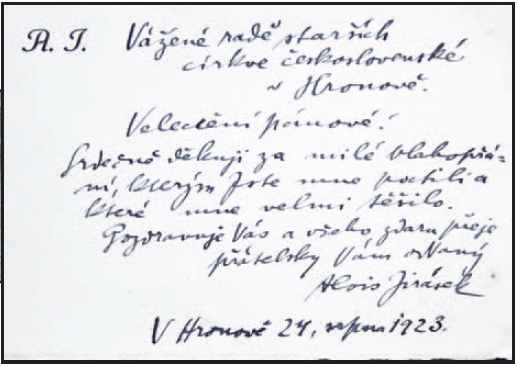 A. J. Vážené radě starších
církve československé
v Hronově.
Velectění pánové!
Srdečně děkuji za milé blahopřá-
ní, kterým jste mne poctili a
které mne velmi těšilo.
Pozdravuje Vás a všeho zdaru přeje
přátelsky Vám oddaný
Alois Jirásek
V Hronově 24, srpna 1923.